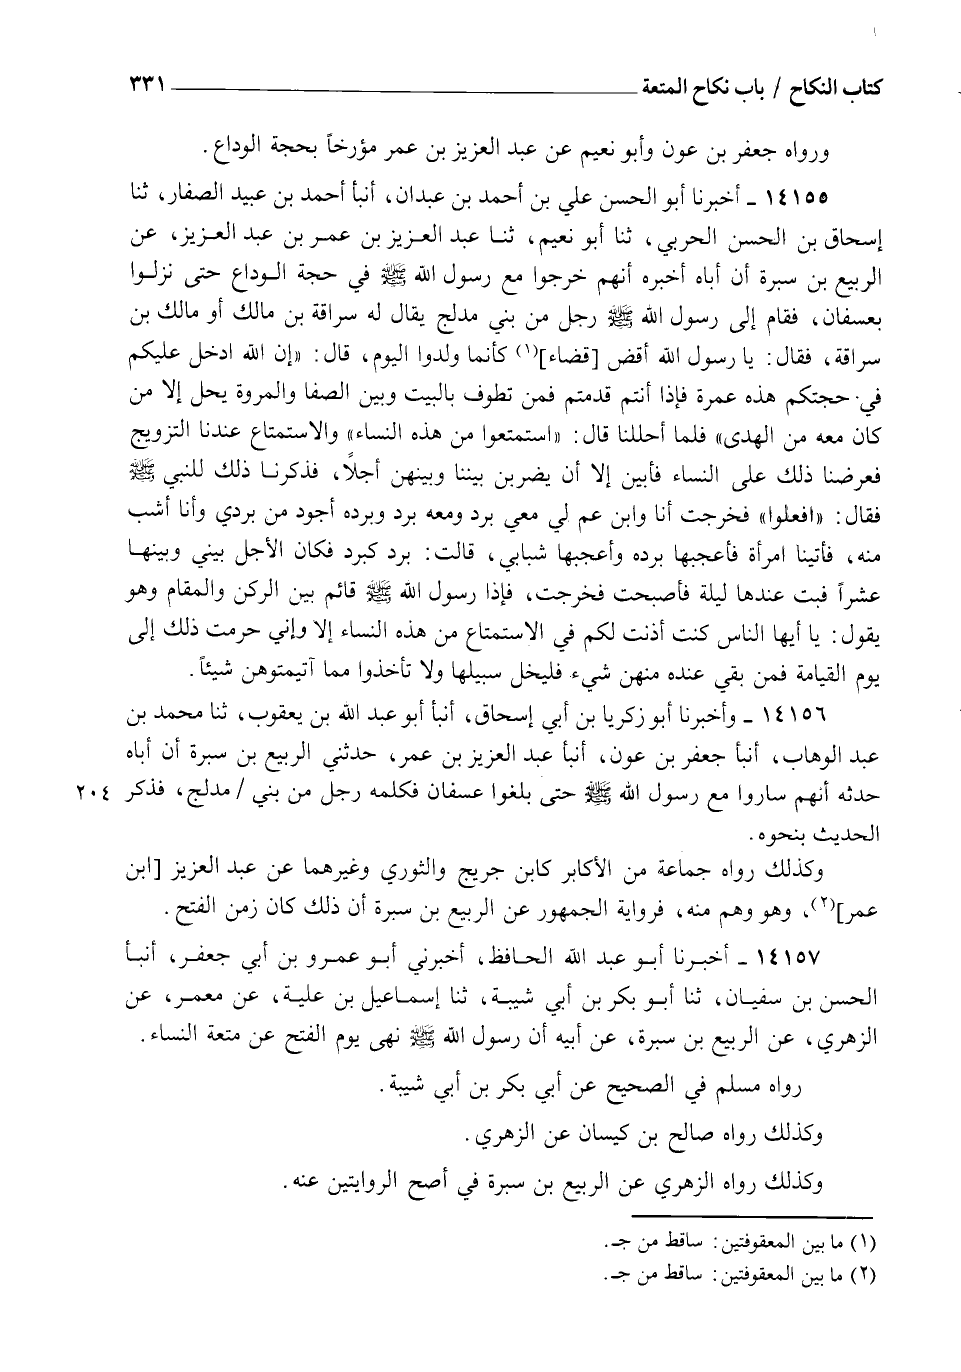 كتاب النكاح / باب نكاح المتعة ٣٣١
ورواه جعفر بن عون وأبو نعيم عن عبد العزيز بن عمر مؤرخاً بحجة الوداع .
١٤١٥٥ ـ أخبرنا أبو الحسن علي بن أحمد بن عبدان، أنبأ أحمد بن عبيد الصفار، ثنا
إسحاق بن الحسن الحربي، ثنا أبو نعيم، ثنا عبد العزيز بن عمر بن عبد العزيز، عن
الربيع بن سبرة أن أباه أخبره أنهم خرجوا مع رسول الله ﷺ في حجة الوداع حتى نزلوا
بعسفان، فقام إلى رسول الله ﷺ رجل من بني مدلج يقال له سراقة بن مالك أو مالك بن
سراقة، فقال: يا رسول الله أقض [قضاء](١) كأنما ولدوا اليوم، قال: «إن الله ادخل عليكم
في حجتكم هذه عمرة فإذا أنتم قدمتم فمن تطوف بالبيت وبين الصفا والمروة يحل إلا من
كان معه من الهدى» فلما أحللنا قال: «استمتعوا من هذه النساء» والاستمتاع عندنا التزويج
فعرضنا ذلك على النساء فأبين إلا أن يضربن بيننا وبينهن أجلاً، فذكرنا ذلك للنبي ﷺ
فقال: «افعلوا» فخرجت أنا وابن عم لي معي برد ومعه برد وبرده أجود من بردي وأنا أشب
منه، فأتينا امرأة فأعجبها برده وأعجبها شبابي، قالت: برد كبرد فكان الأجل بيني وبينها
عشراً فبت عندها ليلة فأصبحت فخرجت، فإذا رسول الله ﷺ قائم بين الركن والمقام وهو
يقول: يا أيها الناس كنت أذنت لكم في الاستمتاع من هذه النساء إلا وإني حرمت ذلك إلى
يوم القيامة فمن بقي عنده منهن شيء فليخل سبيلها ولا تأخذوا مما آتيمتوهن شيئاً.
١٤١٥٦ ـ وأخبرنا أبو زكريا بن أبي إسحاق، أنبأ أبو عبد الله بن يعقوب، ثنا محمد بن
عبد الوهاب، أنبأ جعفر بن عون، أنبأ عبد العزيز بن عمر، حدثني الربيع بن سبرة أن أباه
حدثه أنهم ساروا مع رسول الله ﷺ حتى بلغوا عسفان فكلمه رجل من بني / مدلج، فذكر ٢٠٤
الحديث بنحوه.
وكذلك رواه جماعة من الأكابر كابن جريج والثوري وغيرهما عن عبد العزيز [ابن
عمر](٢)، وهو وهم منه، فرواية الجمهور عن الربيع بن سبرة أن ذلك كان زمن الفتح.
١٤١٥٧ ـ أخبرنا أبو عبد الله الحافظ، أخبرني أبو عمرو بن أبي جعفر، أنبأ
الحسن بن سفيان، ثنا أبو بكر بن أبي شيبة، ثنا إسماعيل بن علية، عن معمر، عن
الزهري، عن الربيع بن سبرة، عن أبيه أن رسول الله ﷺ نهى يوم الفتح عن متعة النساء.
رواه مسلم في الصحيح عن أبي بكر بن أبي شيبة.
وكذلك رواه صالح بن كيسان عن الزهري.
وكذلك رواه الزهري عن الربيع بن سبرة في أصح الروايتين عنه.
(١) ما بين المعقوفتين: ساقط من جـ.
(٢) ما بين المعقوفتين: ساقط من جـ.